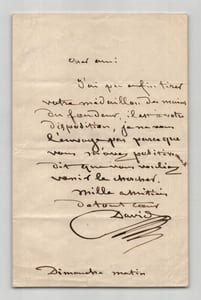 Cher ami:
J'ai pu enfin tirer
votre médaillon des mains
du fondeur, il est à votre
disposition, je ne vous
l'envoye pas parceque
vous m'avez
dit que vous vouliez
venir le chercher.
Mille amitiés
de tout cœur
David
Dimanche matin